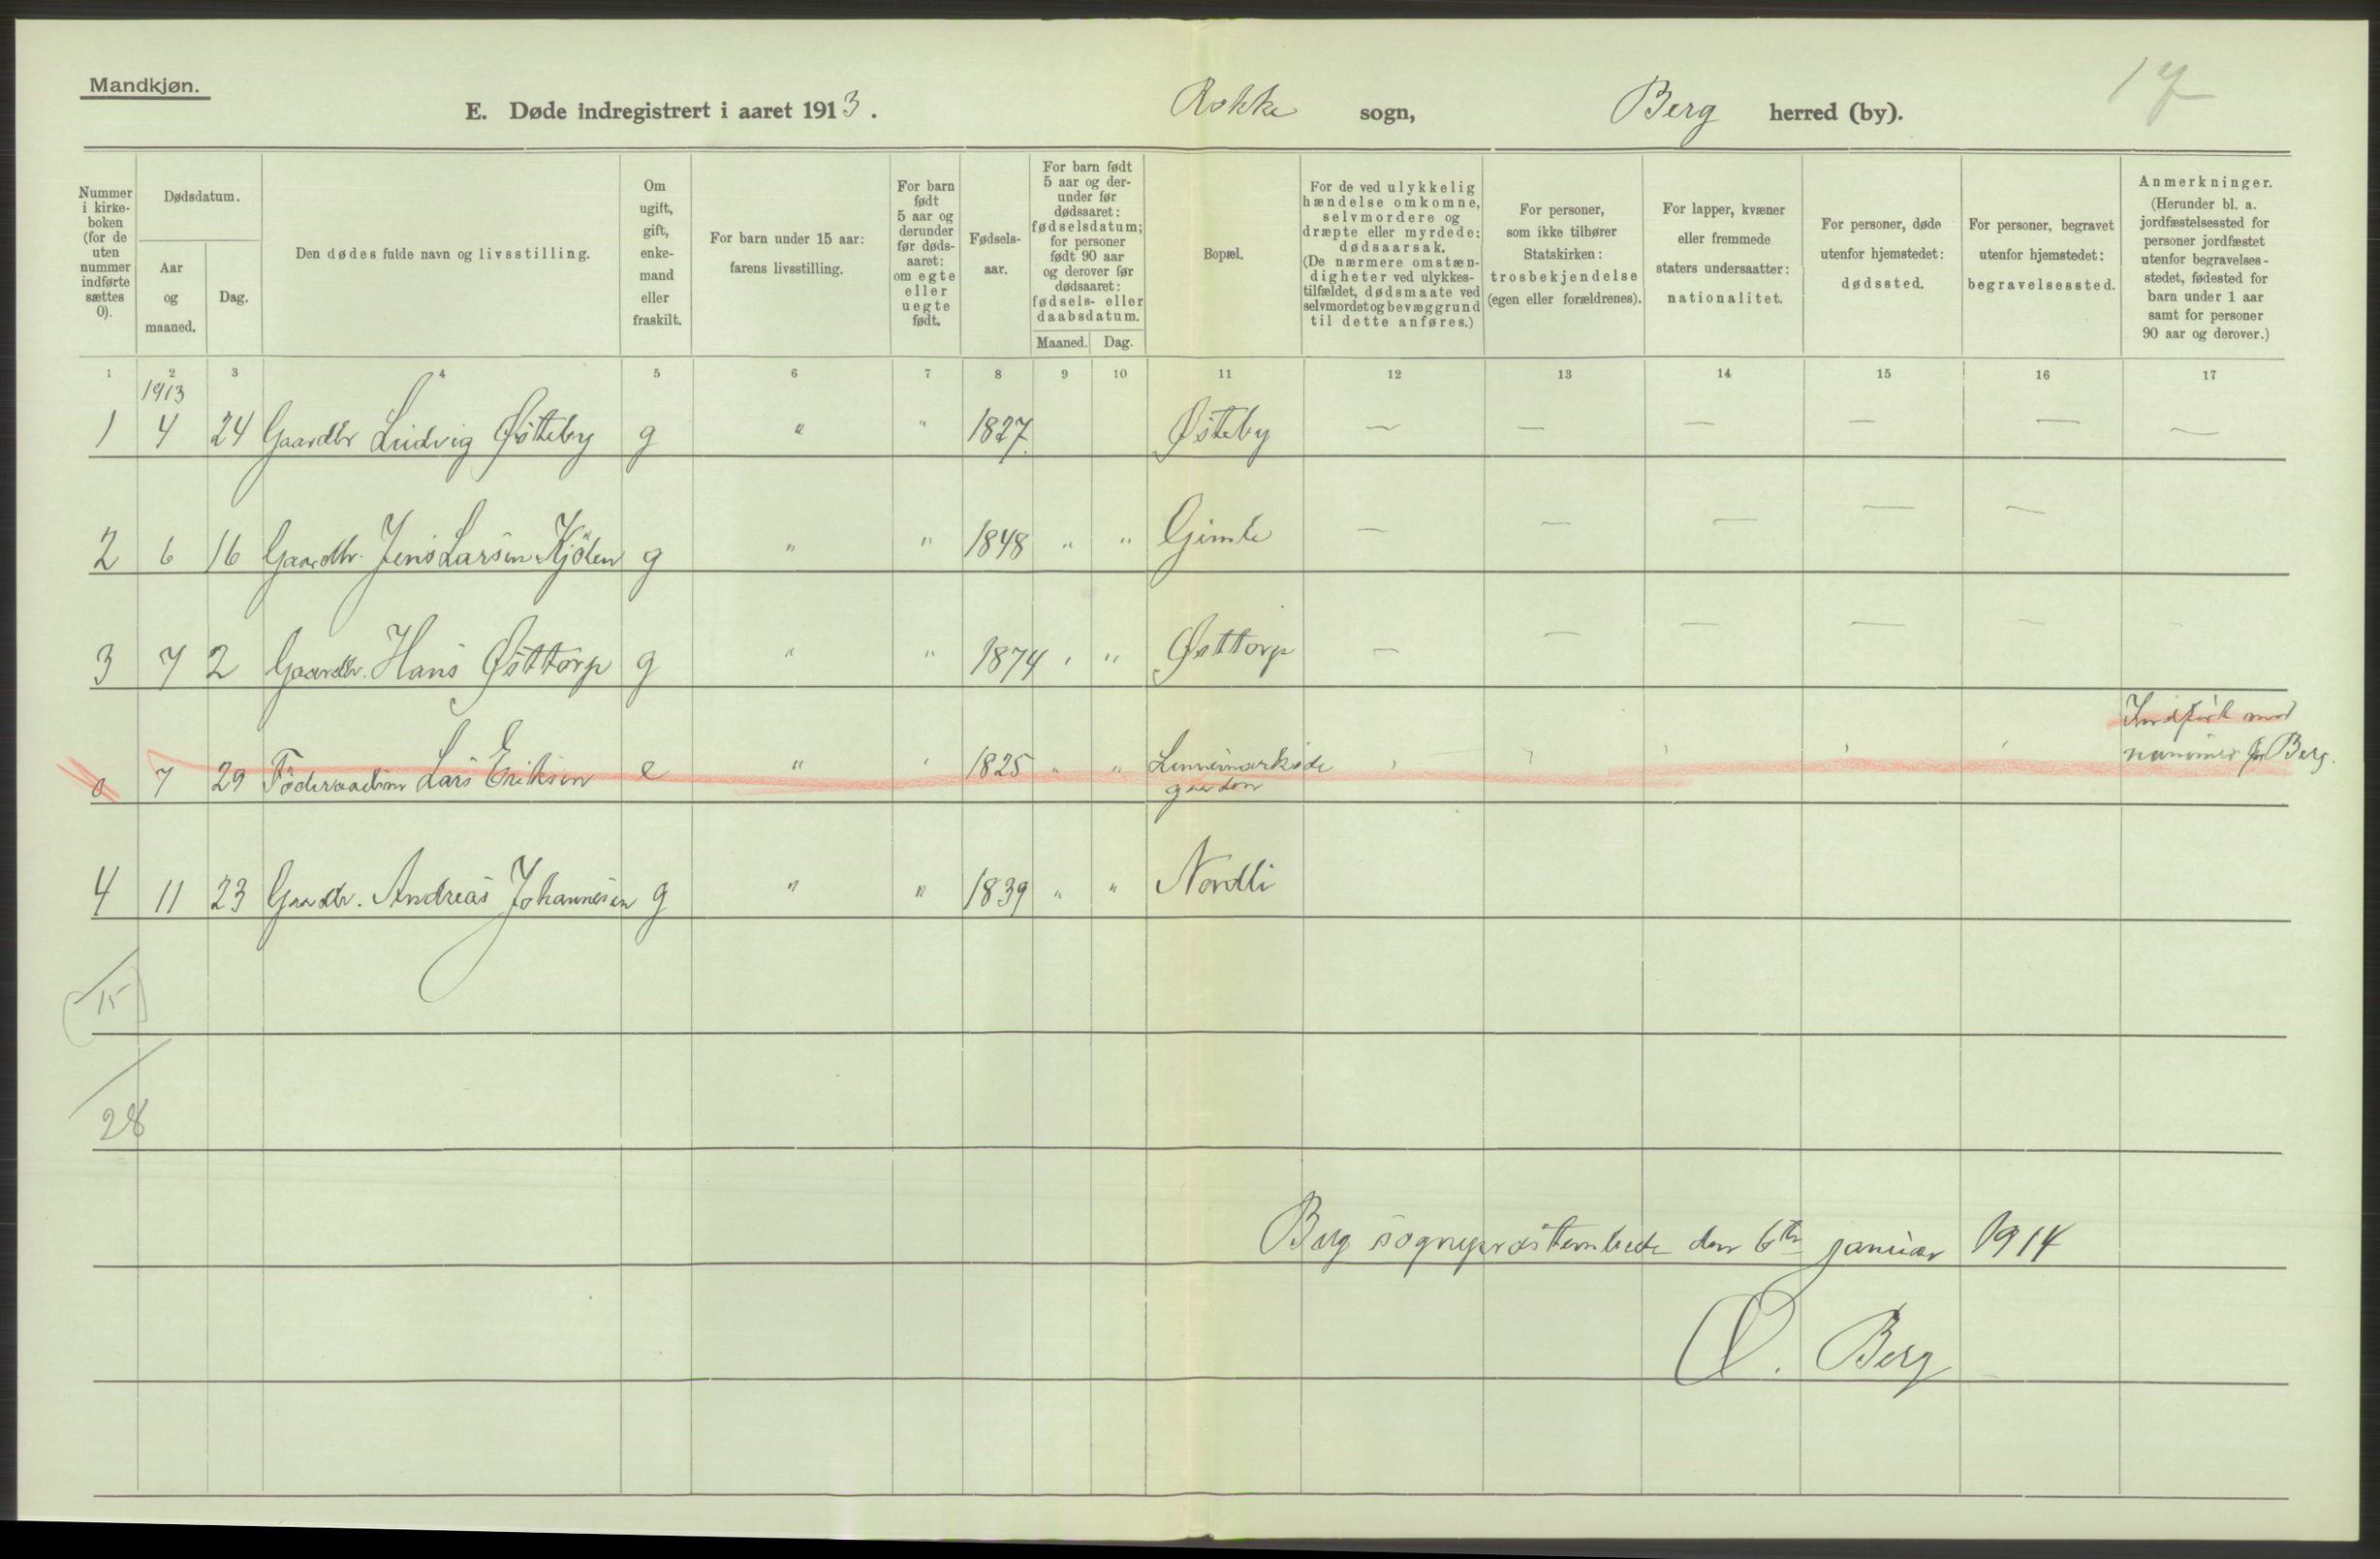 Mandkjøn.
17
E. Døde indregistrert i aaret 1913. Rokke sogn, Berg herred (by).
Nummer i kirke-boken (for de uten nummer indførte sættes 0).
Dødsdatum.
Aar og maaned.
Dag.
Den dødes fulde navn og livsstilling.
Om ugift, gift, enke-mand eller fraskilt.
For barn under 15 aar: farens livsstilling.
For barn født 5 aar og derunder før døds-aaret: om egte eller uegte født.
Fødsels-aar.
For barn født 5 aar og der-under før dødsaaret: fødselsdatum; for personer født 90 aar og derover før dødsaaret: fødsels- eller daabsdatum.
Maaned.
Dag.
Bopæl.
For de ved ulykkelig hændelse omkomne, selvmordere og dræpte eller myrdede: dødsaarsak. (De nærmere omstæn-digheter ved ulykkes-tilfældet, dødsmaate ved selvmordet og bevæggrund til dette anføres.)
For personer, som ikke tilhører Statskirken: trosbekjendelse (egen eller forældrenes).
For lapper, kvæner eller fremmede staters undersaatter: nationalitet.
For personer, døde utenfor hjemstedet: dødssted.
For personer, begravet utenfor hjemstedet: begravelsessted.
Anmerkninger. (Herunder bl. a. jordfæstelsessted for personer jordfæstet utenfor begravelses-stedet, fødested for barn under 1 aar samt for personer 90 aar og derover.)
1 2 3 4 5 6 7 8 9 10 11 12 13 14 15 16 17
1913
1 4 24 Gaardbr Ludvig Østteby g " " 1827. Østeby — — — — — —
2 6 16 Gaardbr. Jens Larsen Kjölen g " " 1848 " " Gimle — — — — —
3 7 2 Gaardbr. Hans Østtorp g " " 1874 " " Østtorp — — — — — —
Indført med
0 7 29 Föderaadsm Lars Eriksen e " " 1825 " " nummer for Berg.
gaarden
4 11 23 Gaardbr. Andreas Johannesen g " " 1839 " " Nordli
15
28
Berg sogneprestembede den 6te januar 1914
O. Berg